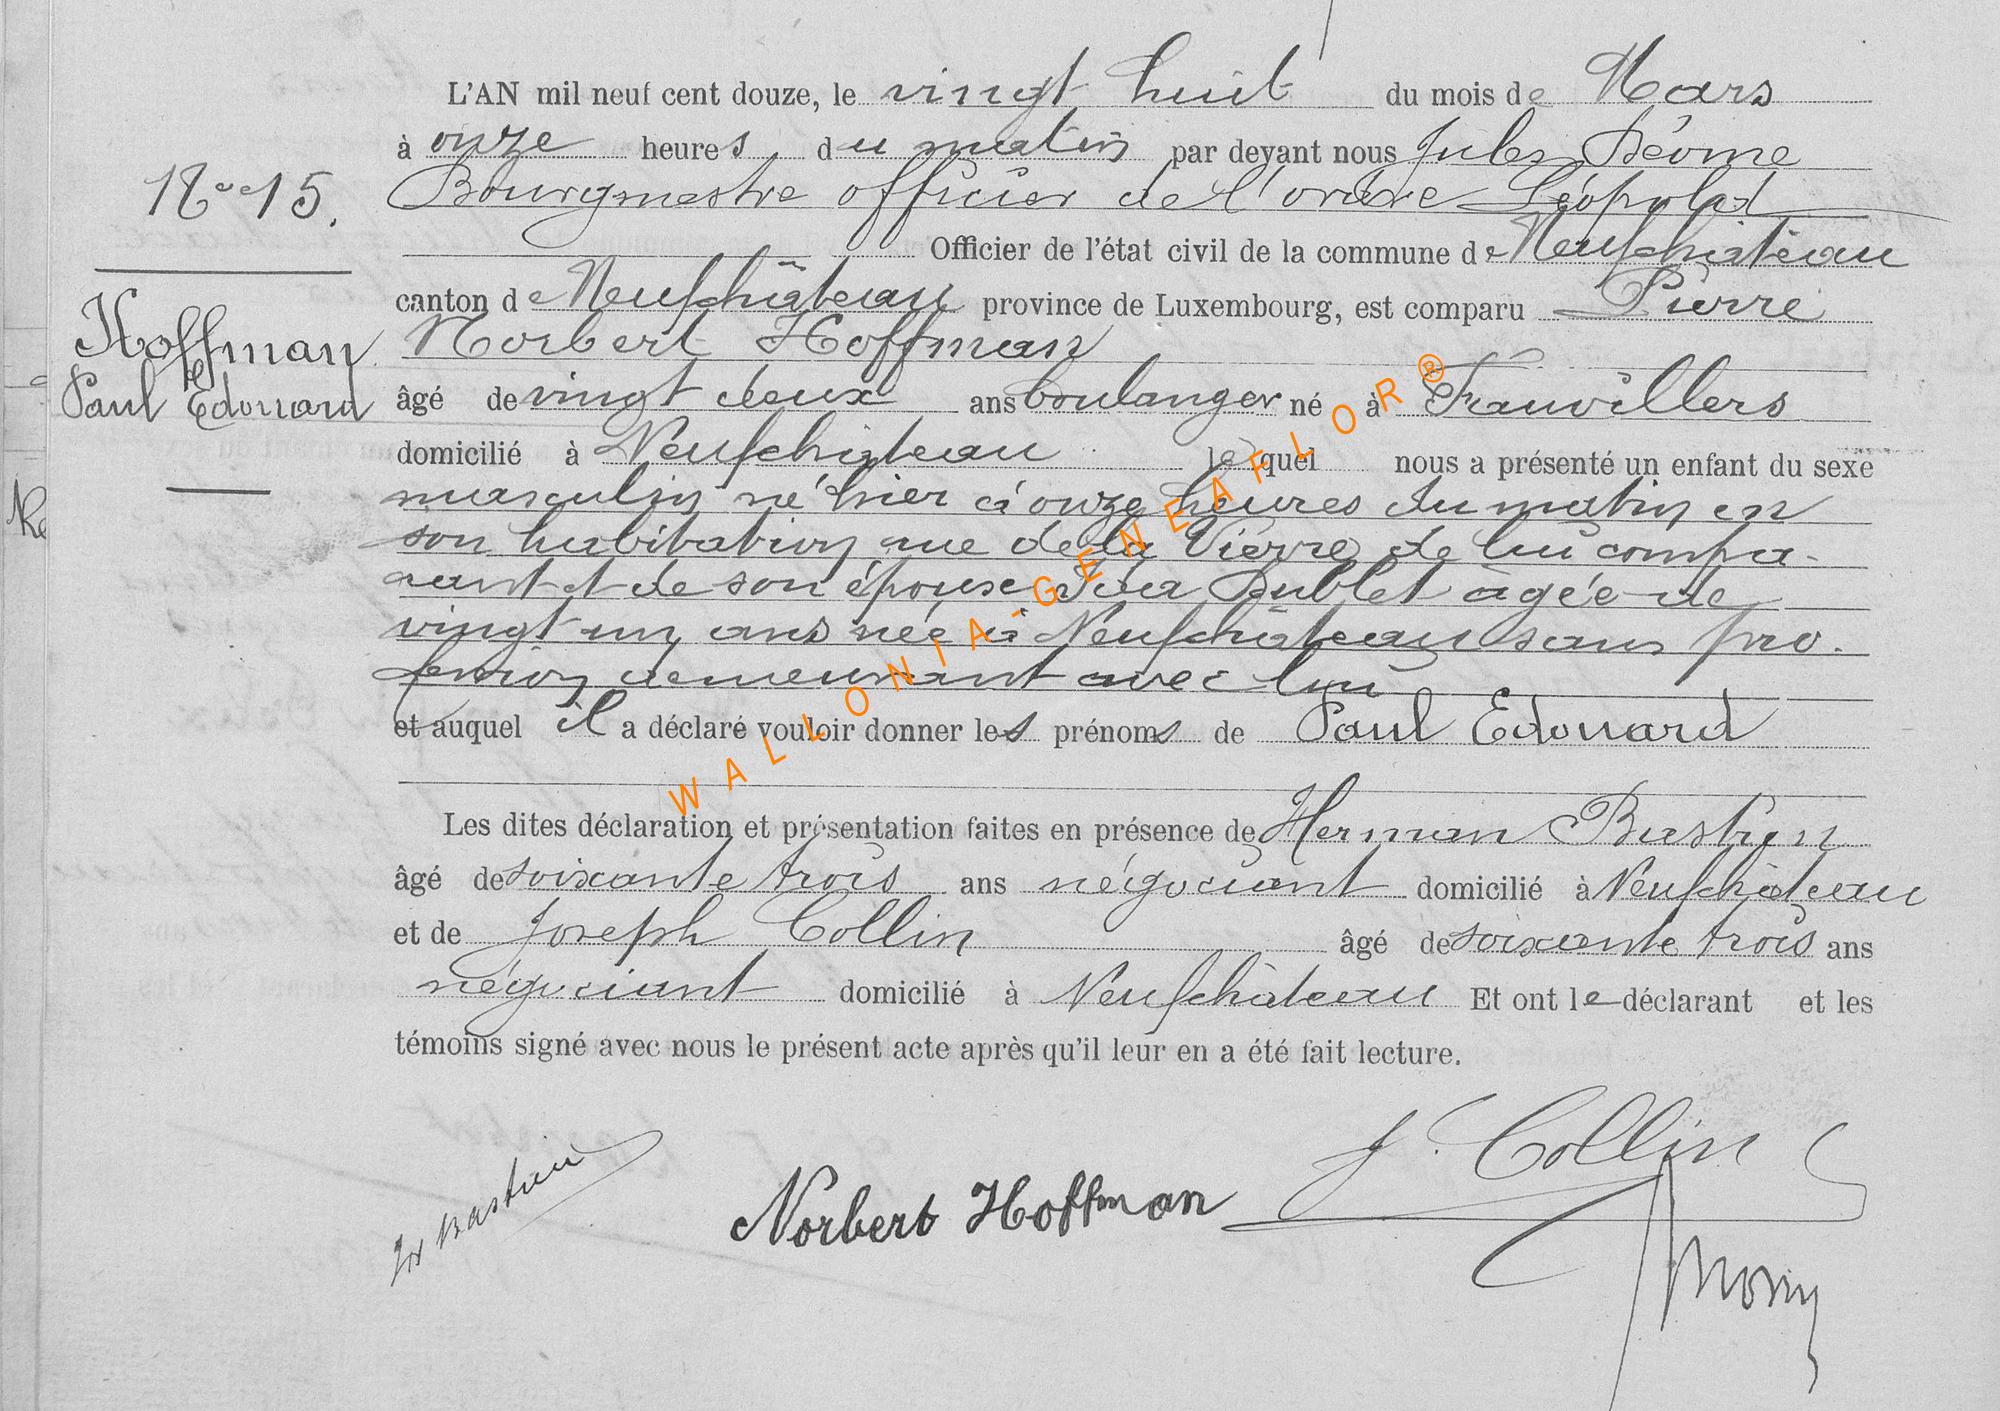 L'AN mil neuf cent douze, le vingt huit du mois de Mars
à onze heures du matin par devant nous Jules
Bourgmestre officier de l'ordre Léopold
Officier de l'état civil de la commune de Neufchâteau
canton de Neufchâteau province de Luxembourg, est comparu Pierre
Norbert Hoffman
âgé de vingt deux ans boulanger né à Fauvillers
domicilié à Neufchâteau lequel nous a présenté un enfant du sexe
masculin né hier à onze heures du matin en
son habitation rue de la Vierre de lui compa-
rant et de son épouse Ida Dublet âgée de
vingt un ans née à Neufchâteau sans pro.
fession demeurant avec lui
et auquel il a déclaré vouloir donner les prénoms de Paul Edouard
Les dites déclaration et présentation faites en présence de Herman Bastien
âgé de soixante trois ans négociant domicilié à Neufchâteau
et de Joseph Collin âgé de soixante trois ans
négociant domicilié à Neufchâteau Et ont le déclarant et les
témoins signé avec nous le présent acte après qu'il leur en a été fait lecture.
N° 15.
Hoffman
Paul Edouard
Bastien
Norbert Hoffman
J. Collin
WALLONIA-GENEAFLOR®